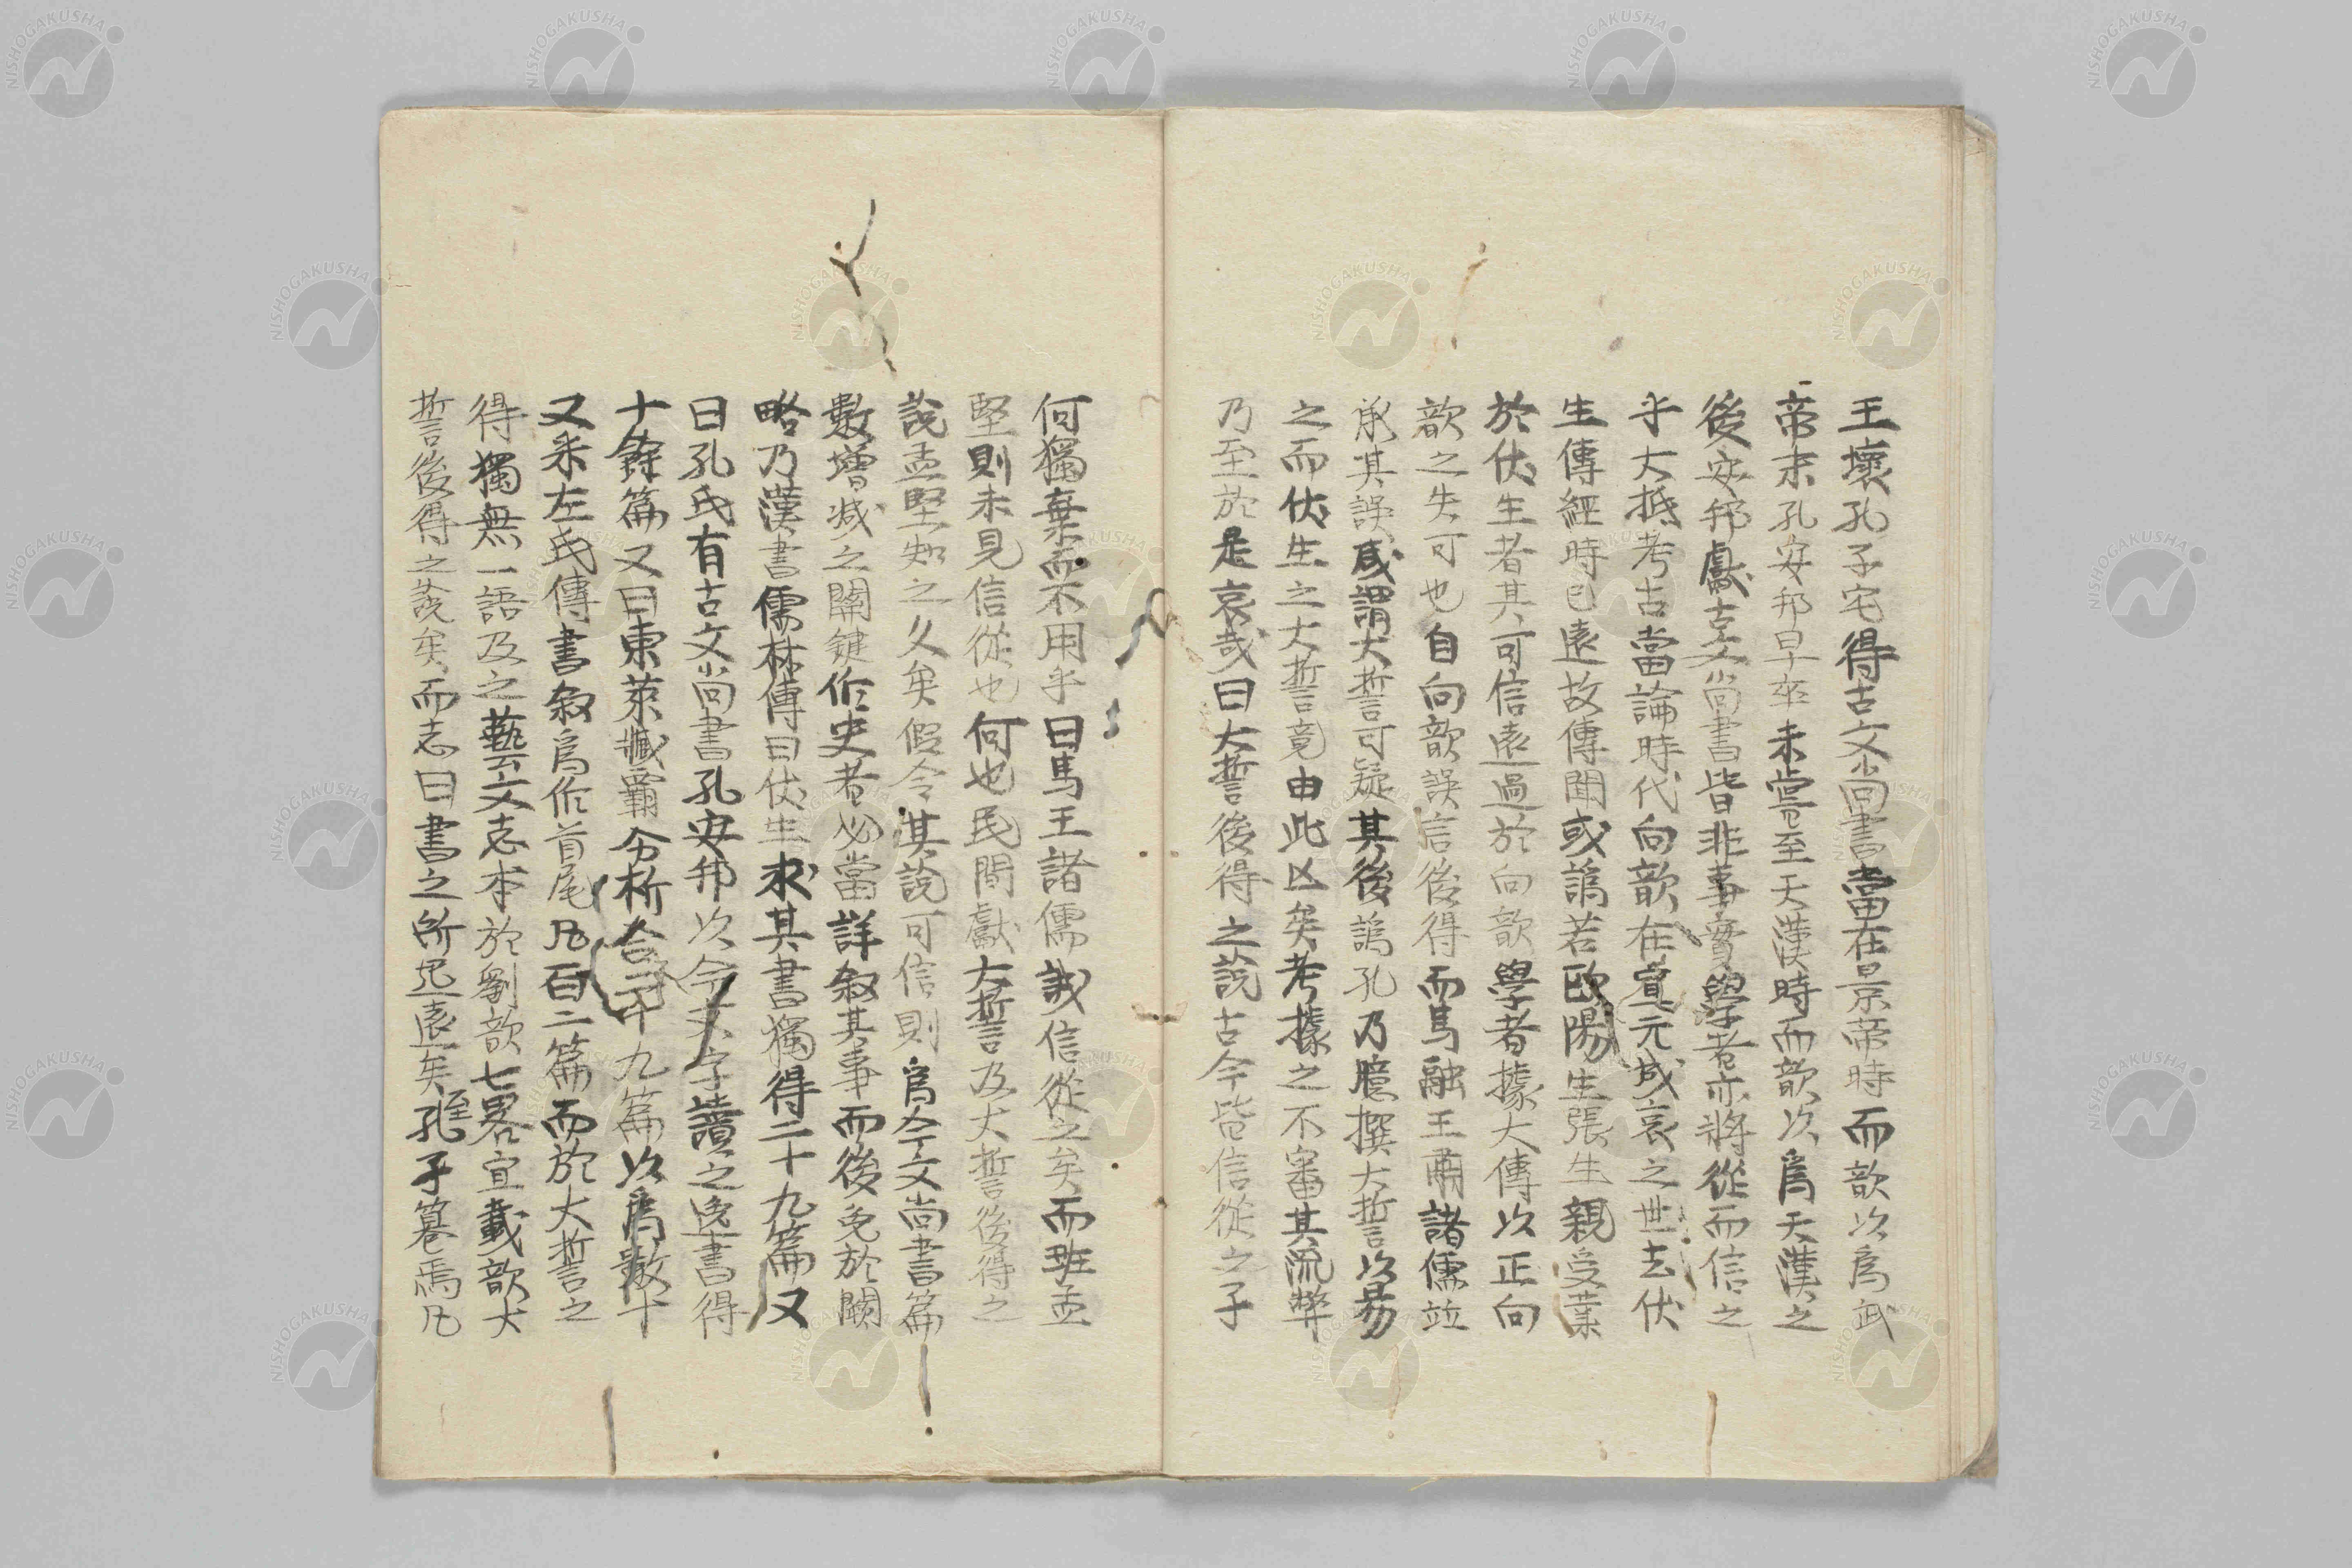 王壞孔子宅得古文尚書當在景帝時而歆以爲武
帝末孔安邦早卒未嘗至天漢時而歆以爲天漢之
後安邦獻古文尚書皆非事實學者亦將從而信之
乎大抵考古當論時代向歆在宣元成哀之世去伏
生傳經時已遠故傳聞或譌若歐陽生張生親受業
於伏生者其可信遠過於向歆學者據大傳以正向
歆之失可也自向歆誤信後得而馬融王肅諸儒竝
承其誤咸謂大誓可疑其後譌孔乃臆撰大誓以易
之而伏生之大誓竟由此亾矣考據之不審其流弊
乃至於是哀哉曰大誓後得之說古今皆信從之子
何獨棄而不用乎曰馬王諸儒誠信從之矣而班孟
堅則未見信從也何也民間獻大誓及大誓後得之
說孟堅知之久矣假令其說可信則爲今文尚書篇
數增減之關鍵作史者必當詳叙其事而後免於闕
略乃漢書儒林傳曰伏生求其書獨得二十九篇又
曰孔氏有古文尚書孔安邦以今文字讀之逸書得
十餘篇又曰東萊張霸分析合二十九篇以爲數十
又釆左氏傳書叙爲作首尾凡百二篇而於大誓之
得獨無一語及之藝文志本於劉歆七畧宜載歆大
誓後得之說矣而志曰書之所起遠矣至孔子篹焉凡
NISHOGAKUSHA